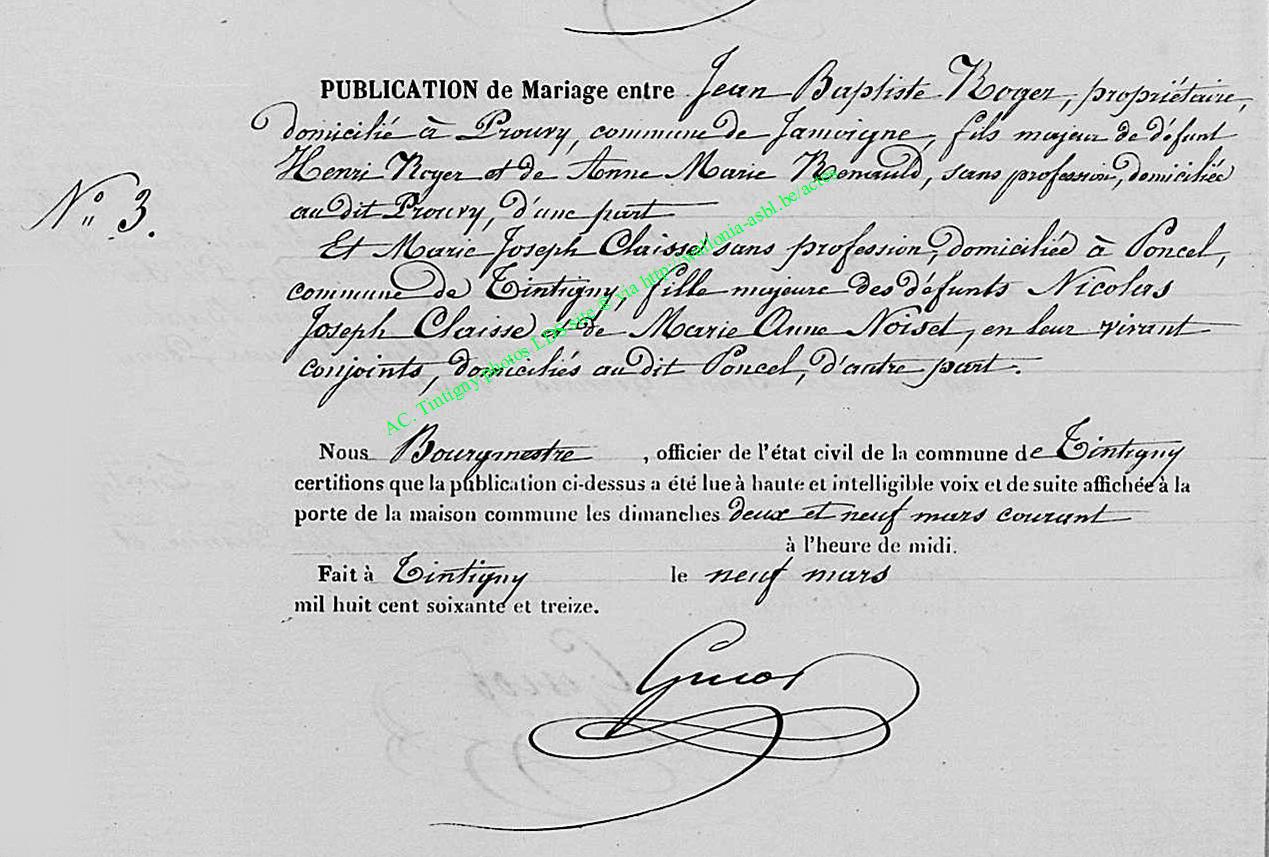 PUBLICATION de Mariage entre Jean Baptiste Roger, propriétaire,
domicilié à Prouvy, commune de Jamoigne, fils majeur de défunt
Henri Roger et de Anne Marie Renauld, sans profession, domiciliée
N° 3.
au dit Prouvy, d'une part
Et Marie Joseph Claisse sans profession, domiciliée à Poncel,
commune de Tintigny, fille majeure des défunts Nicolas
Joseph Claisse et de Marie Anne Noiset, en leur vivant
conjoints, domiciliés au dit Poncel, d'autre part.
AC. Tintigny photos LDS site © via http://wallonia-asbl.be/actes
Nous Bourgmestre, officier de l'état civil de la commune de Tintigny
certifions que la publication ci-dessus a été lue à haute et intelligible voix et de suite affichée à la
porte de la maison commune les dimanches deux et neuf mars courant
à l'heure de midi.
Fait à Tintigny le neuf mars
mil huit cent soixante et treize.